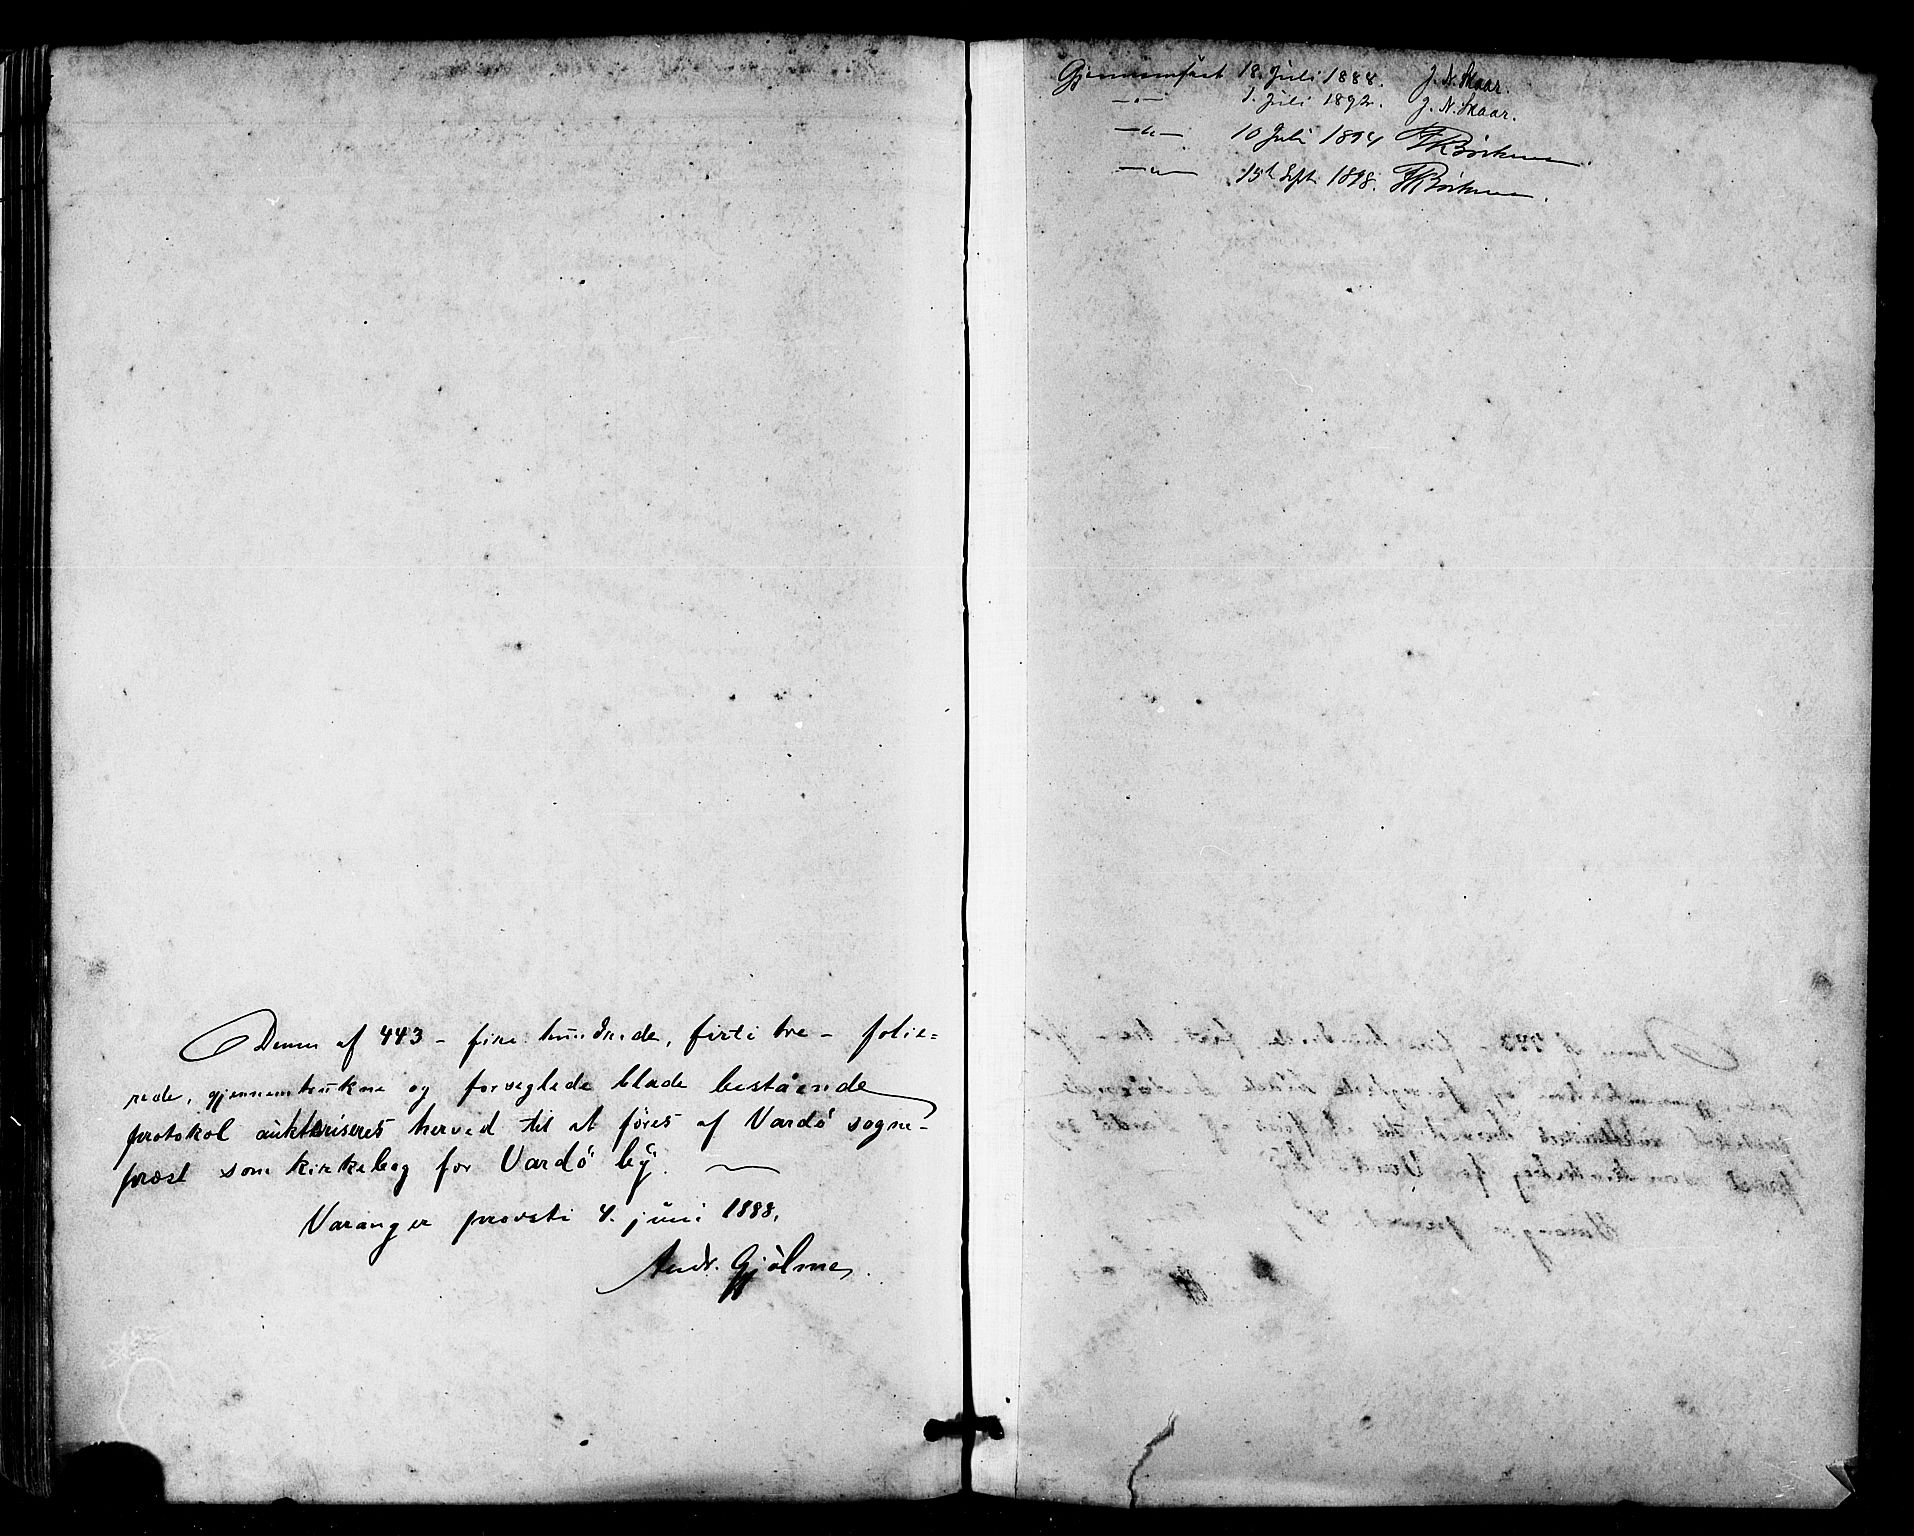 Denne af 443 - fire hundrede, firti tre - folie=
rede, gjennemtrukne og forseglede blade bestående
protokol auktoriseres herved til at föres af Vardö sogne-
præst som kirkebog for Vardö by.
Varanger provsti 4. juni 1888.
Andr. Gjölme.
Gjennemseet 18. Juli 1888. J. N. Skaar.
—"— 1. Juli 1892. J. N. Skaar.
—"— 10 Juli 1894
—"— 15de Sept 1898.